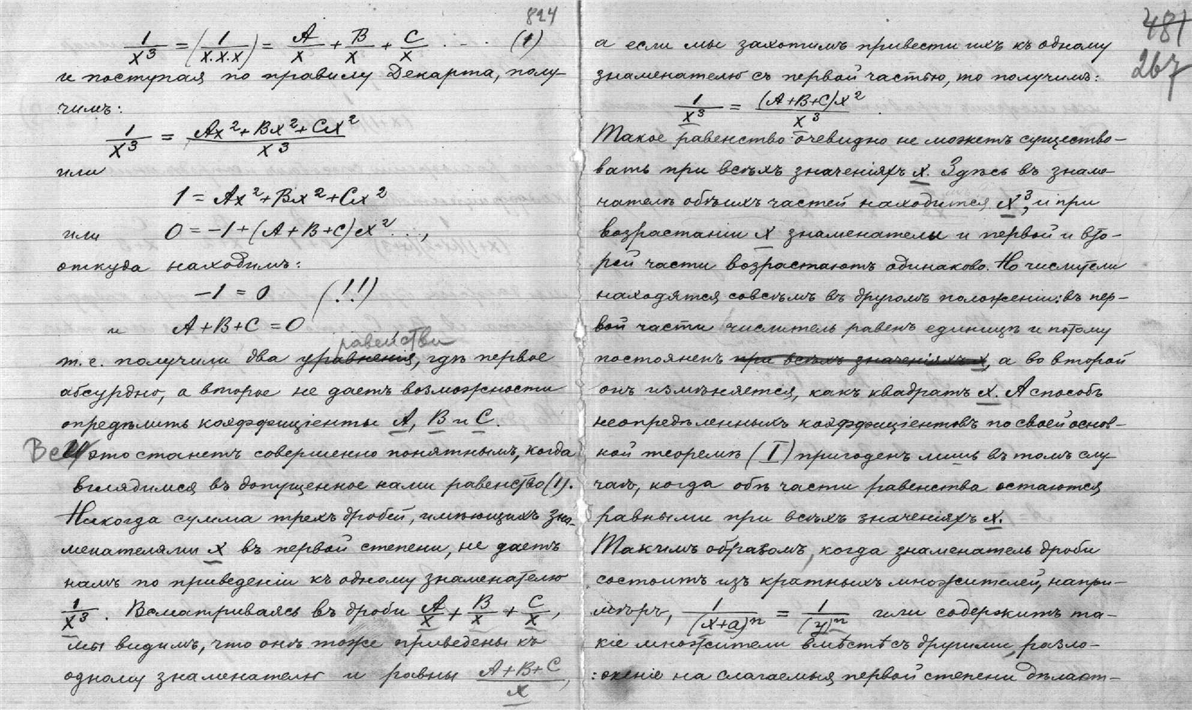 824
1/x³ = (1/x.x.x) = A/x + B/x + C/x . . . (1)
и поступая по правилу Декарта, полу-
чимъ:
1/x³ = (Ax² + Bx² + Cx²)/x³
или
1 = Ax² + Bx² + Cx²
или 0 = -1 + (A + B + C) x² ...,
откуда находимъ:
-1 = 0 (!!)
и A + B + C = 0
равенства
т.е. получили два уравненія, гдѣ первое
абсурдно, а второе не даетъ возможности
опредѣлить коэффиціенты A, B и C.
Все это станетъ совершенно понятнымъ, когда
вглядимся въ допущенное нами равенство (1).
Никогда сумма трехъ дробей, имѣющихъ зна-
менателями x въ первой степени, не даетъ
намъ по приведеніи къ одному знаменателю
1/x³. Всматриваясь въ дроби A/x + B/x + C/x,
мы видимъ, что онѣ тоже приведены къ
одному знаменателю и равны (A+B+C)/x,
481
267
а если мы захотимъ привести ихъ къ одному
знаменателю съ первой частью, то получимъ:
1/x³ = (A+B+C)x²/x³
Такое равенство очевидно не можетъ существо-
вать при всѣхъ значеніяхъ x. Здѣсь въ знаме-
нателѣ обѣихъ частей находится x³, и при
возрастаніи x знаменатели и первой и вто-
рой части возрастаютъ одинаково. Но числители
находятся совсѣмъ въ другомъ положеніи: въ пер-
вой части числитель равенъ единицѣ и потому
постояненъ при всѣхъ значеніяхъ x, а во второй
онъ измѣняется, какъ квадратъ x. А способъ
неопредѣленныхъ коэффиціентовъ по своей основ-
ной теоремѣ (I) пригоденъ лишь въ томъ слу-
чаѣ, когда обѣ части равенства остаются
равными при всѣхъ значеніяхъ x.
Такимъ образомъ, когда знаменатель дроби
состоитъ изъ кратныхъ множителей, напри-
мѣръ, 1/(x+a)ⁿ = 1/(y)ⁿ или содержитъ та-
кіе множители вмѣстѣ съ другими, разло-
женіе на слагаемыя первой степени дѣлает-